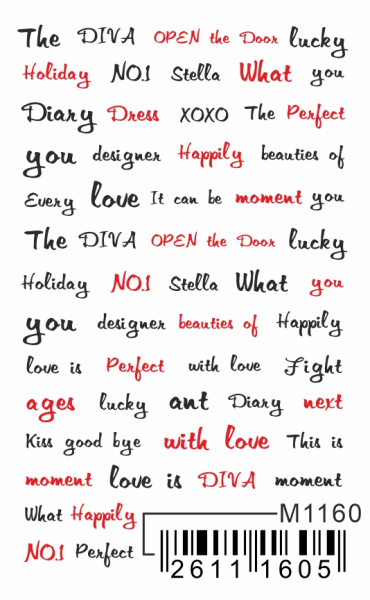 The DIVA OPEN the Door lucky
Holiday NO.1 Stella What you
Diary Dress XOXO The Perfect
you designer Happily beauties of
Every love It can be moment you
The DIVA OPEN the Door lucky
Holiday NO.1 Stella What you
you designer beauties of Happily
love is Perfect with love Fight
ages lucky ant Diary next
Kiss good bye with love This is
moment love is DIVA moment
What Happily M1160
NO.1 Perfect
2611 1605